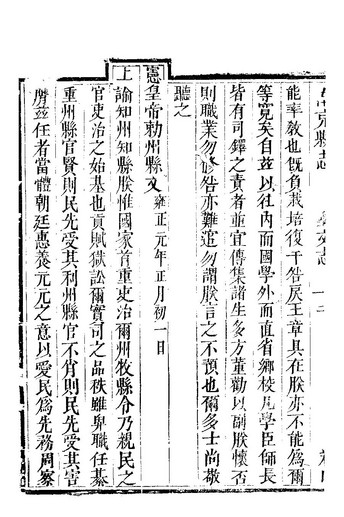 能率教也既負栽培復干咎戾王章具在朕亦不能爲爾
等寬矣自茲以往內而國學外而直省鄉校凡學臣師長
皆有司鐸之責者並宜傳集諸生多方董勸以副朕懷否
則職業勿修咎亦難逭勿謂朕言之不預也爾多士尚敬
聽之
憲皇帝勅州縣文 雍正元年正月初一日
上諭知州知縣朕惟國家首重吏治爾州牧縣令乃親民之
官吏治之始基也貢賦獄訟爾實司之品秩雖卑職任綦
重州縣官賢則民先受其利州縣官不肖則民先受其害
膺茲任者當體朝廷惠養元元之意以愛民爲先務周察